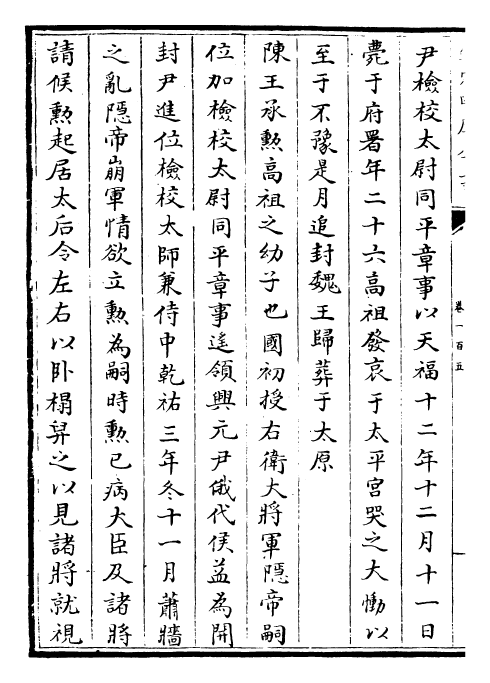 卷一百五
尹檢校太尉同平章事以天福十二年十二月十一日
薨于府署年二十六高祖發哀于太平宮哭之大慟以
至于不豫是月追封魏王歸葬于太原
陳王承勲高祖之幼子也國初授右衛大將軍隱帝嗣
位加檢校太尉同平章事遙領興元尹俄代侯益為開
封尹進位檢校太師兼侍中乾祐三年冬十一月蕭牆
之亂隱帝崩軍情欲立勲為嗣時勲已病大臣及諸將
請候勲起居太后令左右以卧榻舁之以見諸將就視